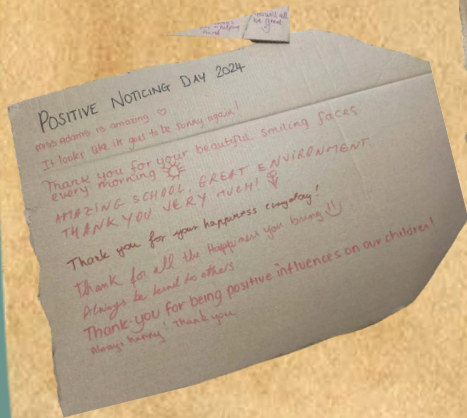 be good
POSITIVE NOTICING DAY 2024
Mrs Adams is amazing ♡
It looks like it's going to be sunny again!
Thank you for your beautiful smiling faces
every morning
AMAZING SCHOOL, GREAT ENVIRONMENT.
THANK YOU VERY MUCH!
Thank you for your happiness everyday!
Thank for all the Happiness you bring
Always be kind to others
Thank-you for being positive influences on our children!
Always happy! Thank you